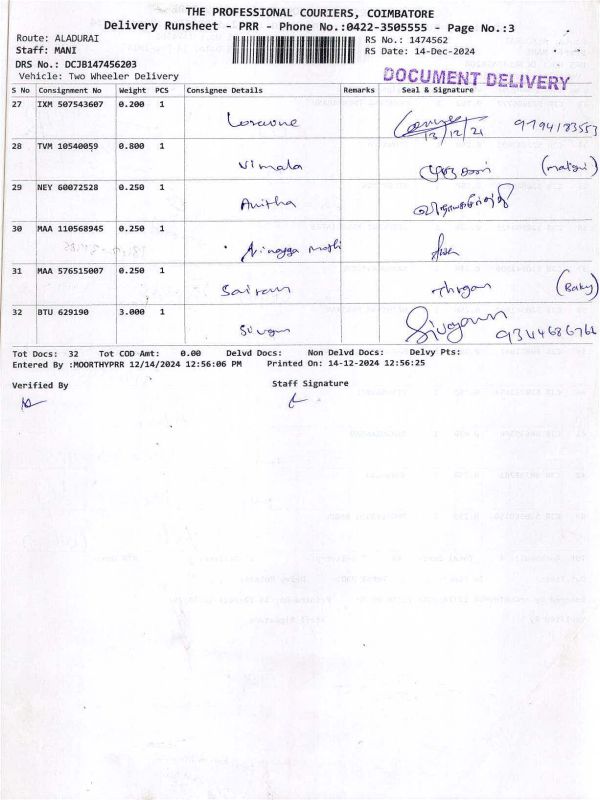 THE PROFESSIONAL COURIERS, COIMBATORE
Delivery Runsheet - PRR - Phone No.:0422-3505555 - Page No.:3
Route: ALADURAI
RS No.: 1474562
Staff: MANI
RS Date: 14-Dec-2024
DRS No.: DCJB147456203
DOCUMENT DELIVERY
Vehicle: Two Wheeler Delivery
S No Consignment No Weight PCS Consignee Details Remarks Seal & Signature
27 IXM 507543607 0.200 1
13/12/21
28 TVM 10540059 0.800 1
Vimala
29 NEY 60072528 0.250 1
Anitha
30 MAA 110568945 0.250 1
31 MAA 576515007 0.250 1
Sairam
32 BTU 629190 3.000 1
Tot Docs: 32 Tot COD Amt: 0.00 Delvd Docs: Non Delvd Docs: Delvy Pts:
Entered By :MOORTHYPRR 12/14/2024 12:56:06 PM Printed On: 14-12-2024 12:56:25
Verified By Staff Signature